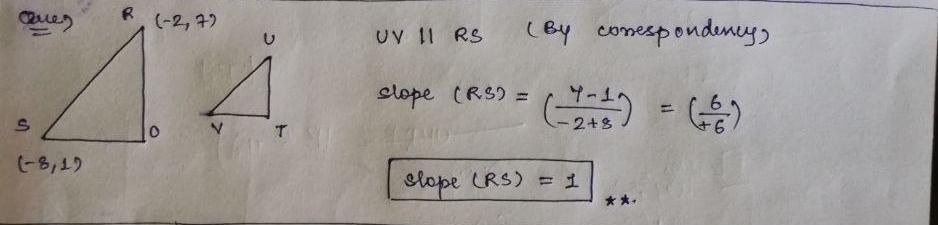 Ques
R (-2, 7)
S
(-8, 1)
O
U
V
T
UV || RS (By correspondency)
slope (RS) = (7-1 / -2+8) = (6 / +6)
slope (RS) = 1 **.